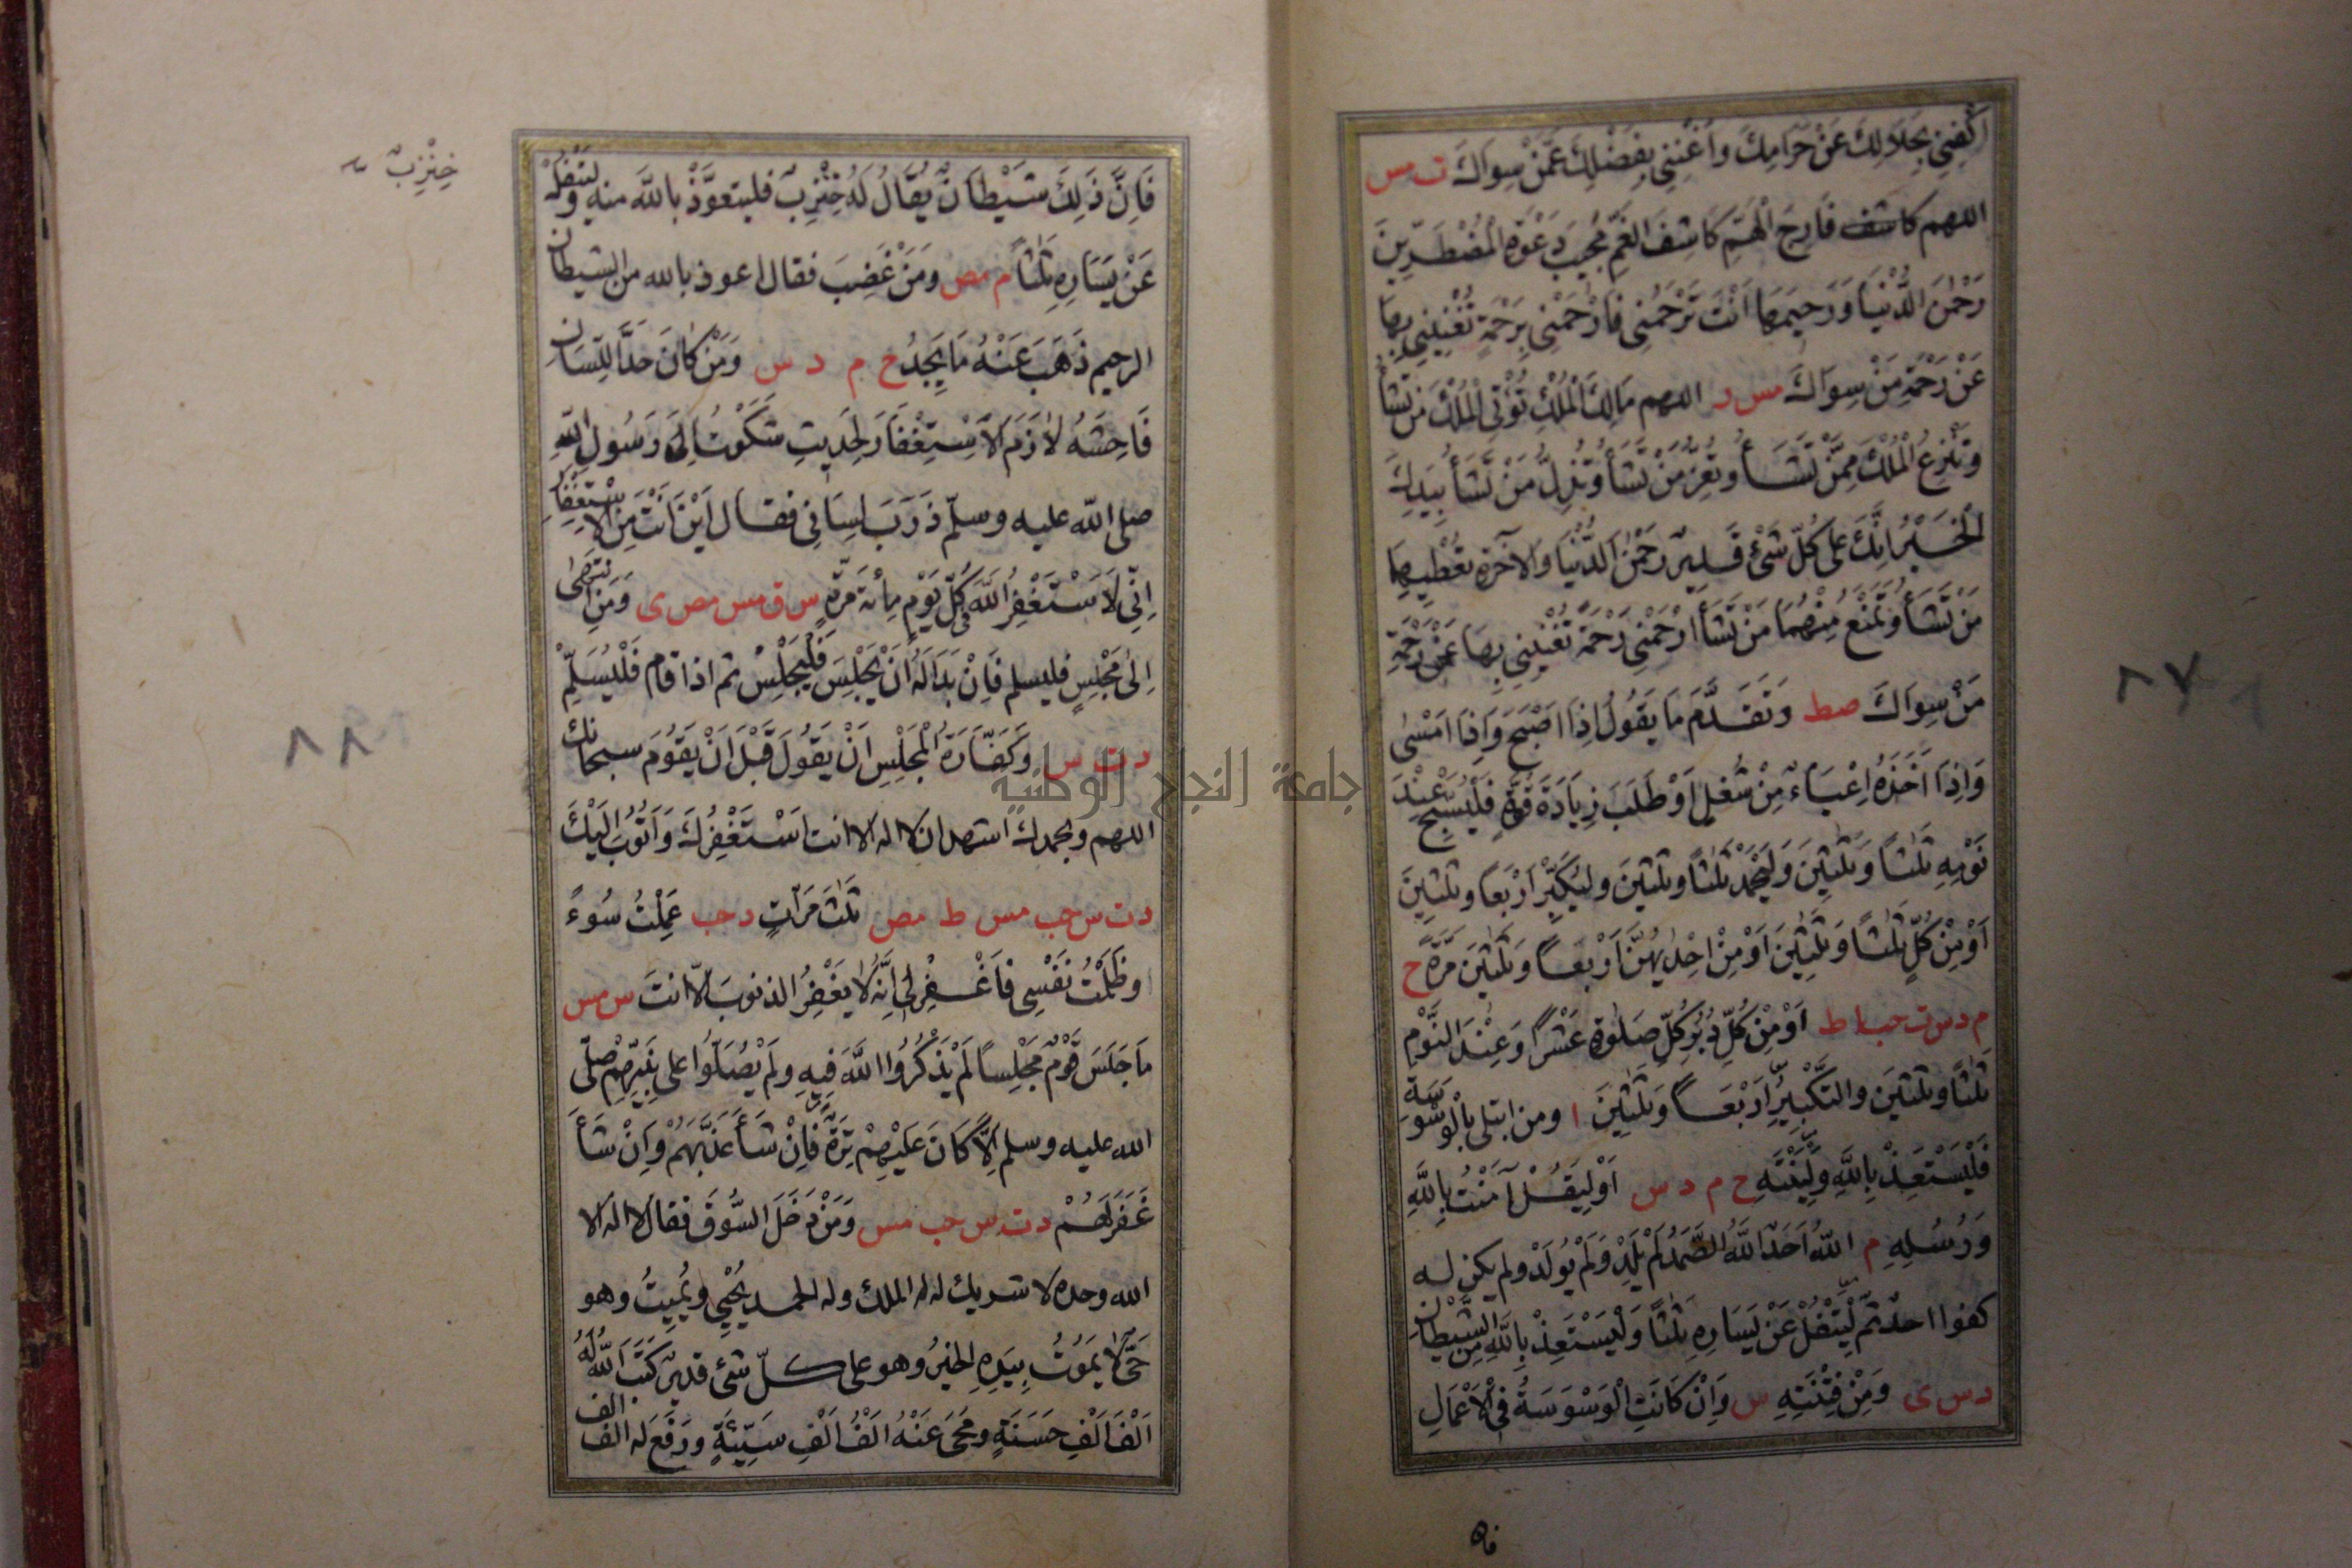 اكْفِنِي بِحَلَالِكَ عَنْ حَرَامِكَ وَاَغْنِنِي بِفَضْلِكَ عَمَّنْ سِوَاكَ ت مس
اللهم كاشف فَارِجَ الْهَمِّ كَاشِفَ الغَمِّ مُجِيبَ دَعْوَةِ الْمُضْطَرِّينَ
رَحْمٰنَ الدُّنْيَا وَرَحِيمَهَا اَنْتَ تَرْحَمُنِي فَارْحَمْنِي بِرَحْمَةٍ تُغْنِينِي بِهَا
عَنْ رَحْمَةِ مَنْ سِوَاكَ مس ر اللهم مَالِكَ الْمُلْكِ تُؤْتِي الْمُلْكَ مَنْ تَشَأُ
وَتَنْزِعُ الْمُلْكَ مِمَّنْ تَشَأُ وَتُعِزُّ مَنْ تَشَأُ وَتُذِلُّ مَنْ تَشَأُ بِيَدِكَ
الْخَيْرُ اِنَّكَ عَلى كُلِّ شَئْ قَدِيرٌ رَحْمٰنَ الدُّنْيَا وَالآخرة تعْطِيهِمَا
مَنْ تَشَأُ وَتَمْنَعُ مِنْهُمَا مَنْ تَشَأُ ارْحَمْنِي رَحْمَةً تُغْنِينِي بِهَا عَنْ رَحْمَةِ
مَنْ سِوَاكَ صط وَتَقَدَّمَ مَا يَقُولُ اِذَا اَصْبَحَ وَاِذَا اَمْسٰى
وَاِذَا اَخَذَهُ اِعْيَاءٌ مِنْ شُغْلٍ اَوْ طَلَبَ زِيَادَةَ قُوَّةٍ فَلْيُسَبِّحْ عِنْدَ
نَوْمِهِ ثَلٰثاً وَثَلٰثِينَ وَلْيَحْمَدْ ثَلٰثاً وثلٰثينَ وليُكَبِّرْ اَرْبَعاً وثلٰثِينَ
اَوْ مِنْ كُلٍّ ثَلٰثاً وَثَلٰثِينَ اَوْ مِنْ اِحْدٰيهُنَّ اَرْبَعاً وَثَلٰثِينَ مَرَّةً خ
م د س ت حب ا ط اَوْ مِنْ كُلٍّ دُبُرَ كُلِّ صَلٰوةٍ عَشْراً وَعِنْدَ النَّوْمِ
ثَلٰثاً وثلٰثينَ والتَّكْبِيرُ اَرْبَعَاً وَثَلٰثِينَ ا ومن ابتلى بِالْوَسْوَسَةِ
فَلْيَسْتَعِذْ بِاللّٰهِ وَلْيَنْتَهِ خ م د س اَوْ لِيَقُلْ آمَنْتُ بِاللّٰهِ
وَرُسُلِهِ م اللّٰهُ اَحَدٌ اللّٰهُ الصَّمَدُ لَمْ يَلِدْ وَلَمْ يُولَدْ ولم يكن له
كفوا احدٌ ثمّ لْيَتْفُلْ عَنْ يَسَارِهِ ثَلٰثاً وَلْيَسْتَعِذْ بِاللّٰهِ مِنَ الشَّيْطَانِ
د س ى وَمِنْ فِتْنَتِهِ س وَاِنْ كَانَتِ الْوَسْوَسَةُ فِي الْاَعْمَالِ
فان
٨٧
خِنْزِبٌ
فَاِنَّ ذَلِكَ شَيْطَانٌ يُقَالُ لَهُ خِنْزِبٌ فليتعوَّذْ بِاللّٰه منه وَلْيَتْفُلْ
عَنْ يَسَارِهِ ثَلٰثاً م مص وَمَنْ غَضِبَ فقال اعوذ بالله من الشيطان
الرجيم ذَهَبَ عَنْهُ مَا يَجِدُ خ م د س وَمَنْ كَانَ حَدَّ اللِّسَانِ
فَاحِشَهُ لَازَمَ الاِسْتِغْفَارَ لِحَدِيثِ شَكَوْتُ اِلَى رَسُولِ اللّٰهِ
صلى اللّٰه عليه وسلّم ذَرَبَ لِسَانِي فقال اَيْنَ اَنْتَ مِنَ الْاِسْتِغْفَارِ
اِنِّي لَاَسْتَغْفِرُ اللّٰهَ فِي كُلِّ يَوْمٍ مِأئة مَرَّةٍ س ق مس مص ى وَمَنِ انْتَهٰى
اِلٰى مَجْلِسٍ فليسلم فَاِنْ بَدَا لَهُ اَنْ يَجْلِسَ فَلْيَجْلِسْ ثم اذا قام فَلْيُسَلِّمْ
د ت س وَكَفَّارَةُ الْمَجْلِسِ اَنْ يَقُولَ قَبْلَ اَنْ يَقُومَ سبحانك
اللهم وبحمدك اشهد ان لا اله الا انت اَسْتَغْفِرُكَ وَاَتُوبُ اِلَيْكَ
د ت س حب مس ط مص ثَلٰثَ مَرَّاتٍ د حب عَمِلْتُ سُوءً
وظَلَمْتُ نَفْسِي فَاغْفِرْ لِي اِنَّهُ لَا يَغْفِرُ الذنوبَ الّا انتَ س مس
مَا جَلَسَ قَوْمٌ مَجْلِساً لَمْ يَذْكُرُوا اللّٰهَ فِيهِ وَلَمْ يُصَلُّوا على نَبِيِّهِمْ صَلّى
الله عليه وسلم اِلَّا كَانَ عَلَيْهِمْ تِرَةٌ فَاِنْ شَأَ عَذَّبَهُمْ وَاِنْ شَأَ
غَفَرَ لَهُمْ د ت س حب مس وَمَنْ دَخَلَ السُّوقَ فقال لا اله الا
الله وحده لا شريك له له الملك وله الحمد يُحْيِي وَيُمِيتُ وهو
حَيٌّ لَا يَمُوتُ بِيَدِهِ الخيرُ وهو على كلّ شئ قديرٌ كَتَبَ اللّٰهُ لَهُ
اَلْفَ اَلْفِ حَسَنَةٍ وَمَحَى عَنْهُ اَلْفَ اَلْفِ سَيِّئَةٍ ورَفَعَ له الف الف
٨٨
جامعة النجاح الوطنية